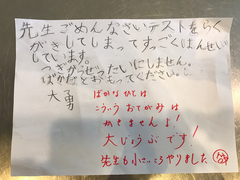 先生ごめんなさいテストをらく
がきしてしまってすっごくはんせい
しています。
つぎからぜったいにしません。
ばかだとおもってください。
大勇
ばかなひとは
こういうおてがみは
かきませんよ!
大じょうぶです!
先生も小さいころやりました。